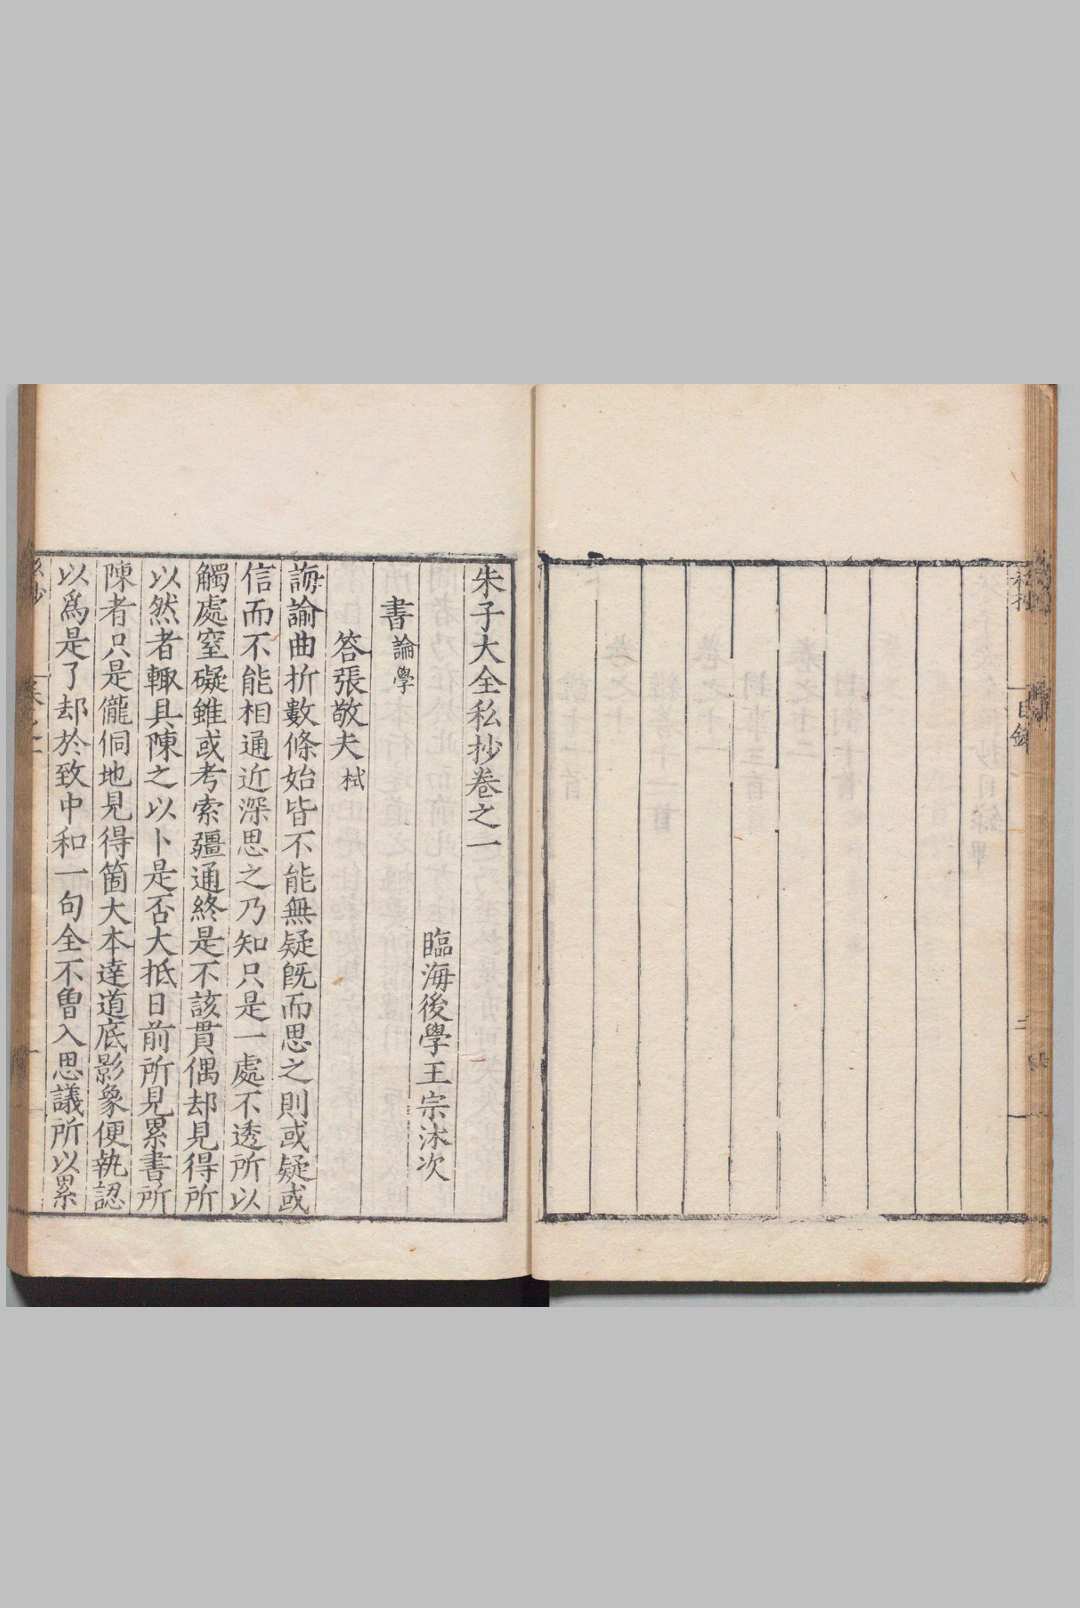 朱子大全私抄卷之一
臨海後學王宗沐次
書論學
答張敬夫栻
誨諭曲折數條始皆不能無疑旣而思之則或疑或
信而不能相通近深思之乃知只是一處不透所以
觸處窒礙雖或考索彊通終是不該貫偶却見得所
以然者輒具陳之以卜是否大抵日前所見累書所
陳者只是儱侗地見得箇大本達道底影象便執認
以爲是了却於致中和一句全不曾入思議所以累